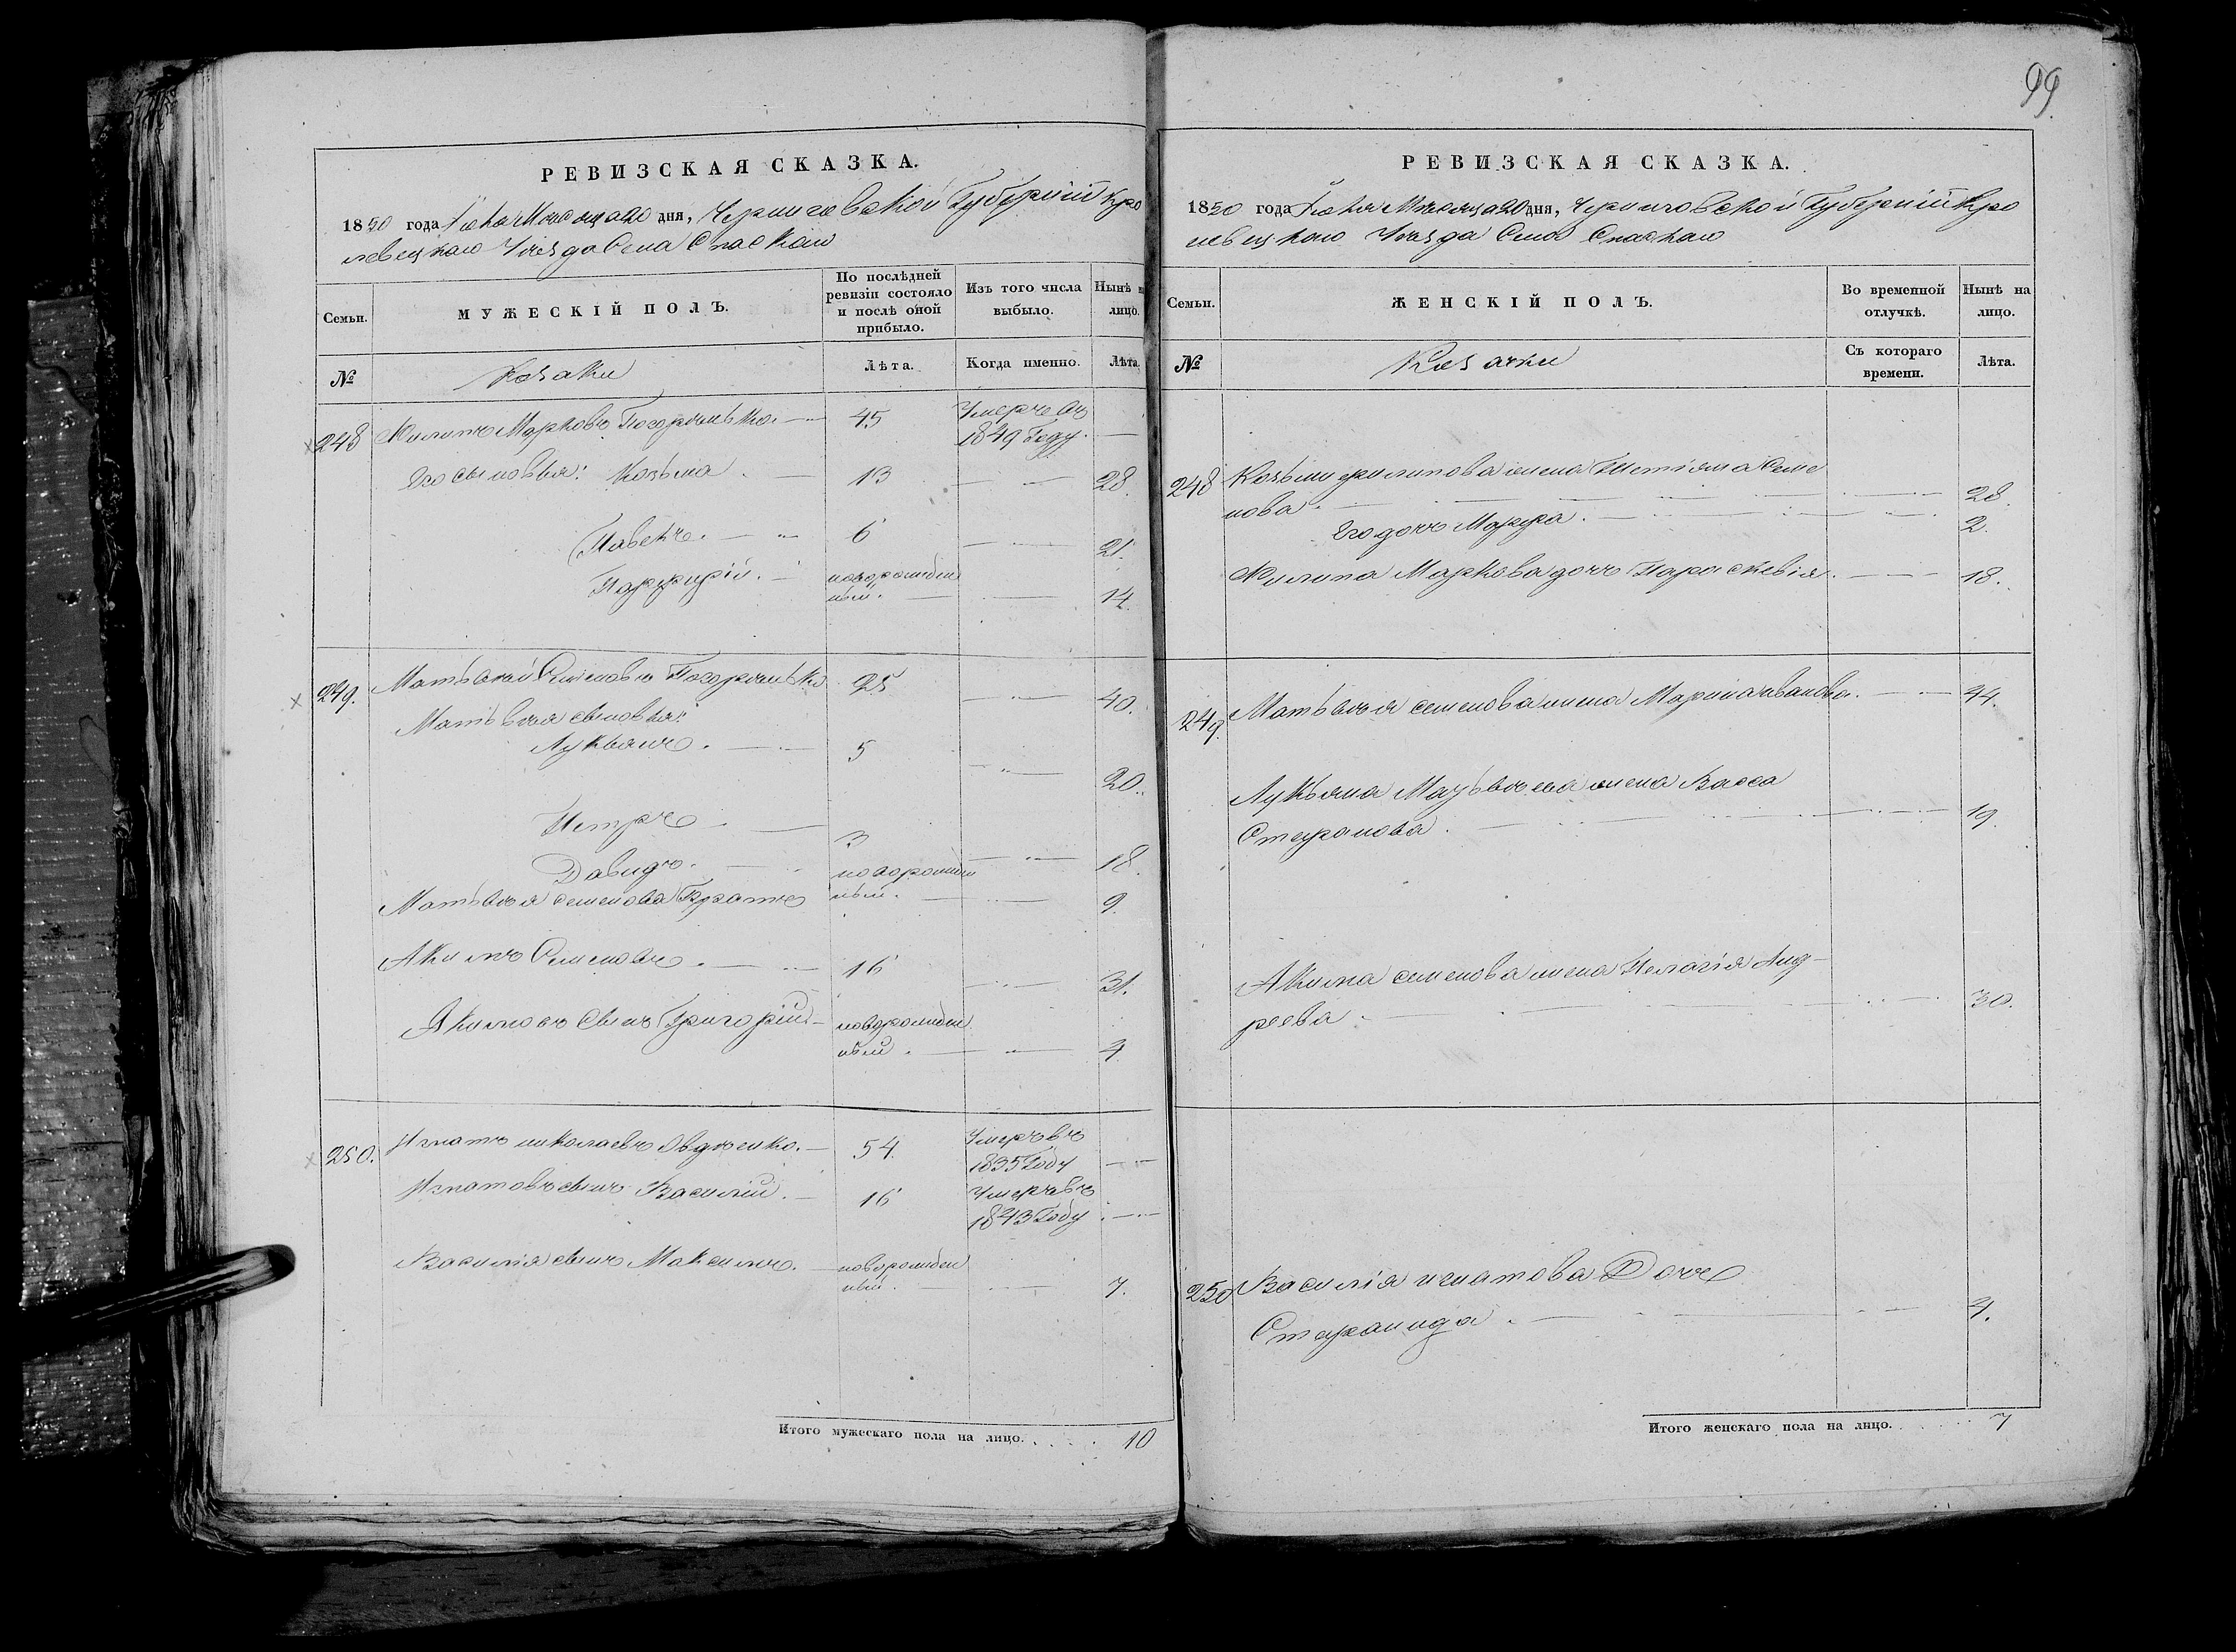 РЕВИЗСКАЯ СКАЗКА.
1850 года Июня Месяца 20 дня, Черниговской Губернiи Кро
левецкаго Уезда Села Спаскаго
Семьи.
МУЖЕСКІЙ ПОЛЪ.
По послѣдней ревизіи состояло и послѣ оной прибыло.
Изъ того числа выбыло.
Нынѣ на лицо.
№
Козаки
Лѣта.
Когда именно.
Лѣта.
248 Филипъ Марковъ 45 Умеръ въ
1849 Году.
Его сыновья: Козьма 13 28.
Павелъ. 6 21.
Парфирій. новорожден
ный. 14
249. Матьвей Семеновъ 25 40.
Матьвея сыновья:
Лукьянъ. 5 20.
Петръ 3 18.
Давидъ. новорожден
ный. 9.
Матьвея семенова Братъ
Акимъ Семеновъ. 16 31.
Якимовъ Сынъ Григорій новорожден
ный. 4
250. Игнатъ николаевъ Овдѣенко. 54. Умеръ въ
1835 Году
Игнатовъ сынъ Василій. 16 Умеръ въ
1843 Году
Василія сынъ Максимъ. новорожден
ный. 7.
Итого мужескаго пола на лицо. 10
99.
РЕВИЗСКАЯ СКАЗКА.
1850 года Июня Месяца 20 дня, Черниговской Губерній Кро
левецкаго Уезда Села Спаскаго
Семьи.
ЖЕНСКІЙ ПОЛЪ.
Во временной отлучкѣ.
Нынѣ на лицо.
№
Козачки
Съ котораго времени.
Лѣта.
248 Козьмы филипова жена Семе
нова. 28
Его дочь Марфа. 2.
Филипа Маркова дочь Параскевія. 18.
249. Матьвея семенова жена Марина иванова. 44.
Лукьяна Матьвеева жена Васса
Стефанова. 19.
Акима семенова жена Пелагія Анд-
реева 30.
250 Василія игнатова Дочь
Стефанида. 4.
Итого женскаго пола на лицо. 7